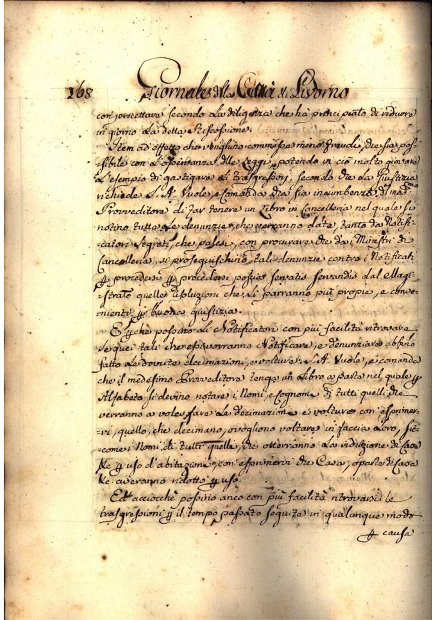 168 Giornale della Città di Livorno
con progettare secondo la diligenza che ha principiato di ridurre
in giorno la detta Riscossione.
Item ad effetto che venghino commesse meno fraudi, che sia pos-
sibile con l'osservanza delle leggi, potendo in ciò molto giovare
l'esempio di gastigare li trasgressori, secondo che la Giustizia
richiede S. A. Vuole, e comanda che sia incumbenza di
Provveditore di far tenere un Libro in Cancelleria nel quale si
notino tutte le denunzie, che verranno date, tanto da Notifi-
catori segreti, che palesi, con procurare che da Ministri di
Cancelleria, si proseguischino tali denunzie contro i Notificati
e procedersi possia servatis servandis dal Magi-
strato quelle resoluzioni che li parranno più proprie, e conve-
nienti buona giustizia.
E perche possino li Notificatori con più facilità ritrovare
se quei tali che essi vorranno Notificare, e denunziare abbino
fatto le dovute decimazioni, e volture S. A. Vuole, e comanda
che il medesimo Proveditore tenga un Libro a parte nel quale p
Alfabeto si devino notare i Nomi, e Cognomi di tutti quelli, che
verranno a volersi far le decimazioni e volture con esprimer-
vi, quello, che decimano, o vogliono voltare in faccia loro, sic-
come i Nomi, di tutti quelli, che otterranno la riduzione di Case
p uso d'abitazione, con esprimervi che Casa, o poste di Case
averanno ridotto p uso.
Et acciocchè possino anco con più facilità ritrovarsi le
trasgressioni p il tempo passato seguite in qualunque modo
p causa